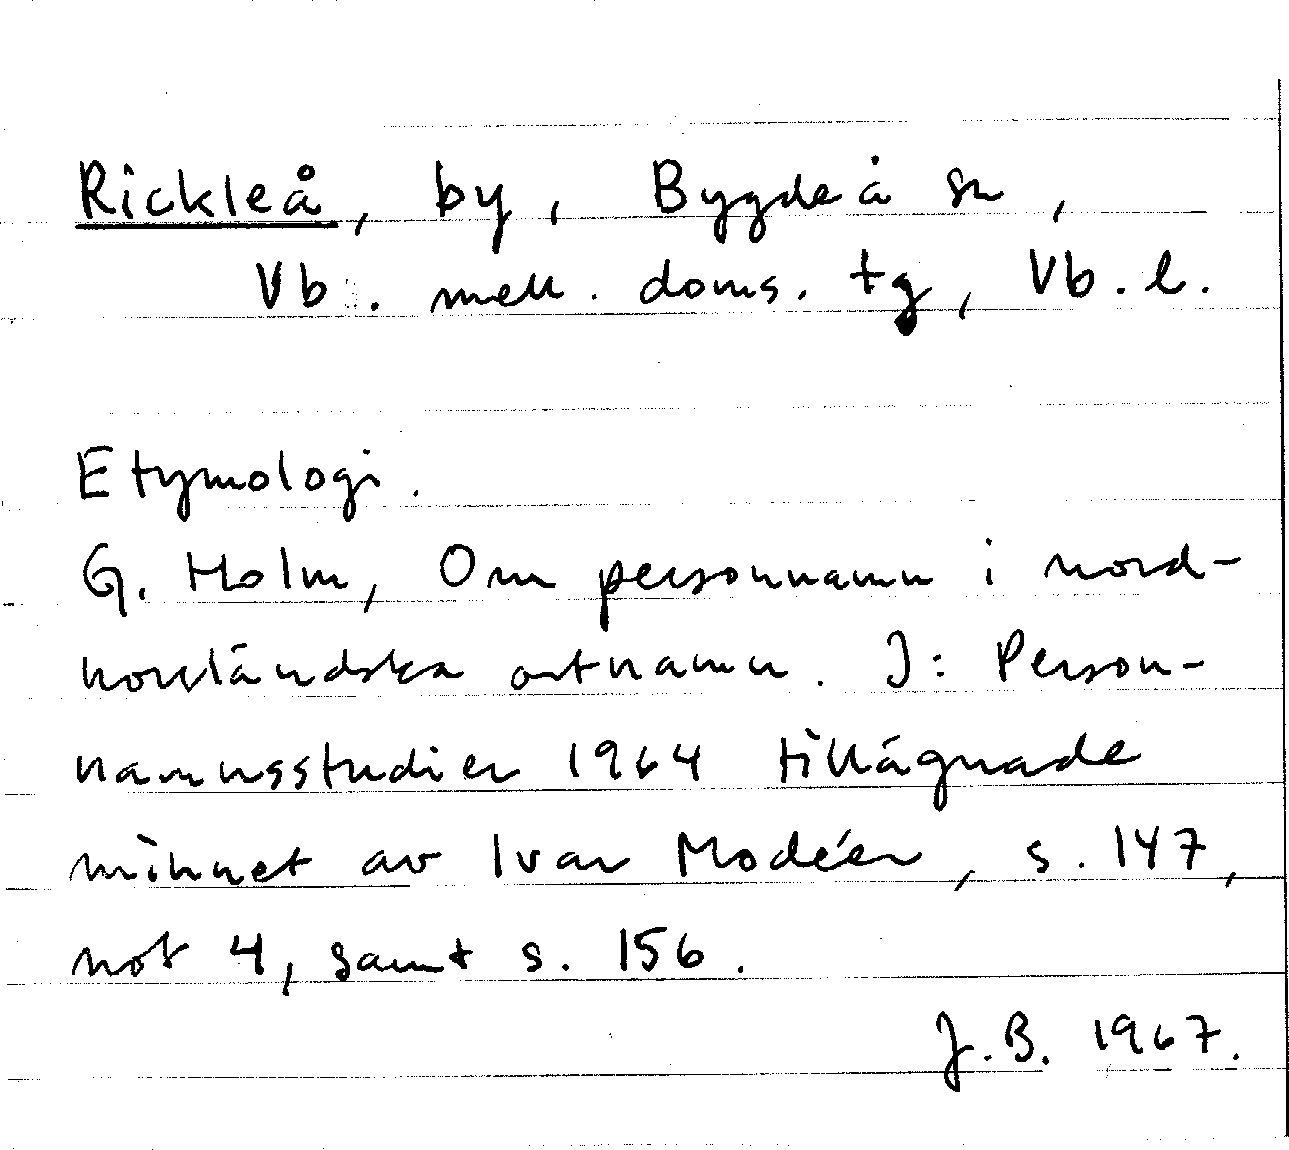 Rickleå, by, Bygdeå sn,
Vb. mell. doms. tg, Vb. l.
Etymologi.
G. Holm, Om personnamn i nord-
norrländska ortnamn. I: Person-
namnsstudier 1964 tillägnade
minnet av Ivar Modéer, s. 147,
not 4, samt s. 156.
J.B. 1967.